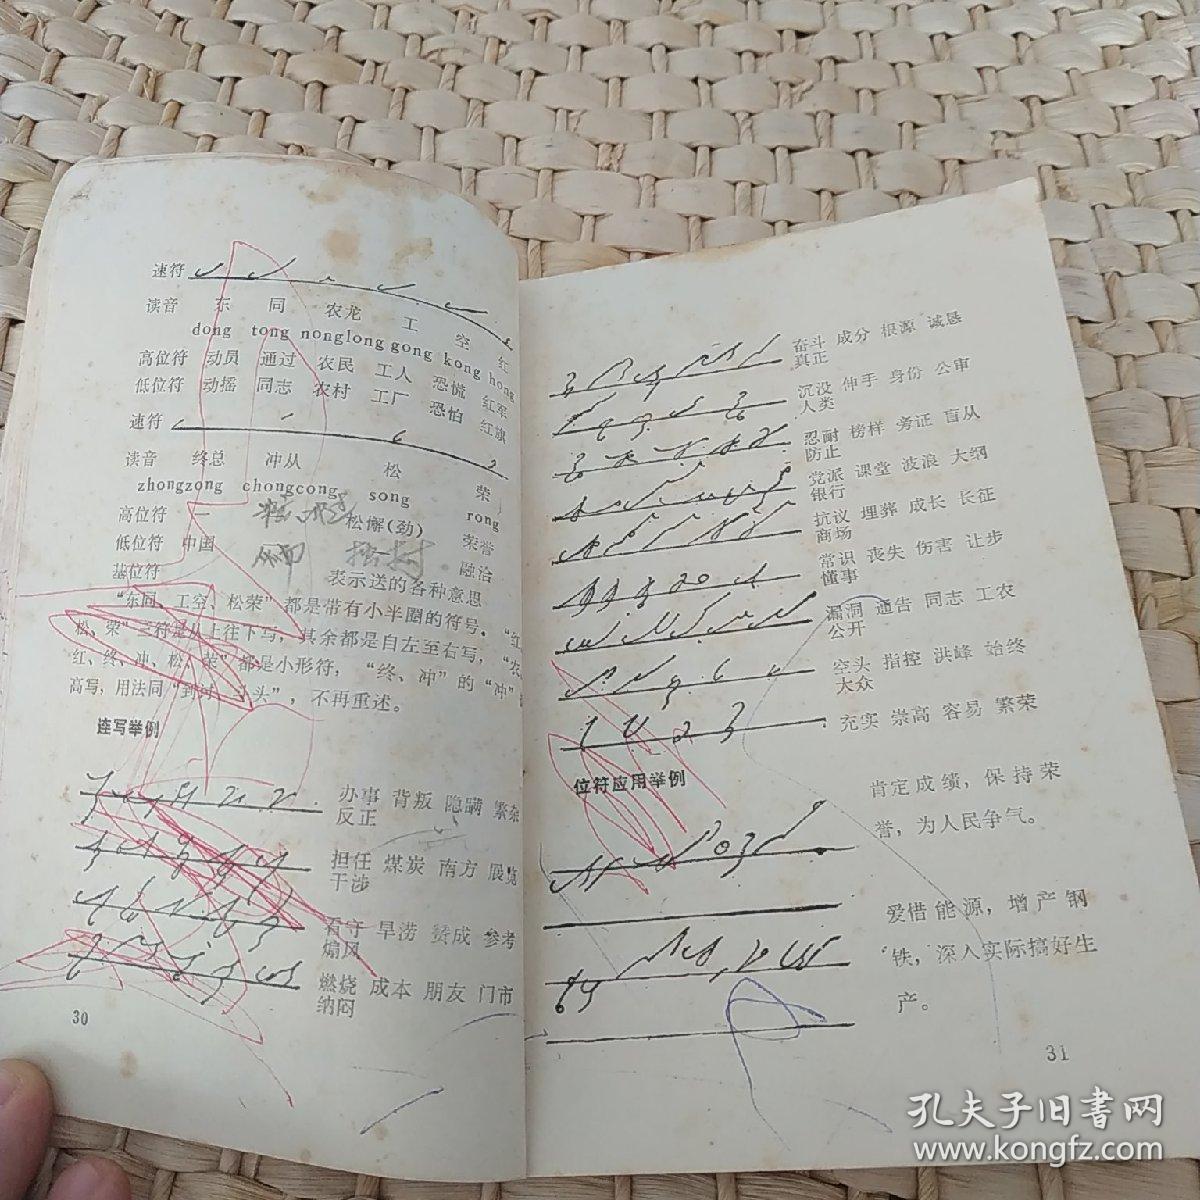 速符
读音 东 同 农龙 工 空 红
dong tong nonglong gong kong hong
高位符 动员 通过 农民 工人 恐慌 红军
低位符 动摇 同志 农村 工厂 恐怕 红旗
速符
读音 终总 冲从 松 荣
zhongzong chongcong song rong
高位符 一 松懈(劲) 荣誉
低位符 中国 松树 融洽
基位符 表示送的各种意思
“东同、工空、松荣”都是带有小半圈的符号。“红
松、荣”三符是从上往下写，其余都是自左至右写，“农
红、终、冲、松、荣”都是小形符，“终、冲”的“冲”
高写，用法同“到讨、斗头”，不再重述。
连写举例
办事 背叛 隐瞒 繁杂
反正
担任 煤炭 南方 展览
干涉
看守 旱涝 赞成 参考
煽风
燃烧 成本 朋友 门市
纳闷
30
奋斗 成分 根源 诚恳
真正
沉没 伸手 身份 公审
人类
忍耐 榜样 旁证 盲从
防止
党派 课堂 波浪 大纲
银行
抗议 埋葬 成长 长征
商场
常识 丧失 伤害 让步
懂事
漏洞 通告 同志 工农
公开
空头 指控 洪峰 始终
大众
充实 崇高 容易 繁荣
位符应用举例
肯定成绩，保持荣
誉，为人民争气。
爱惜能源，增产钢
铁，深入实际搞好生
产。
31
孔夫子旧书网
www.kongfz.com